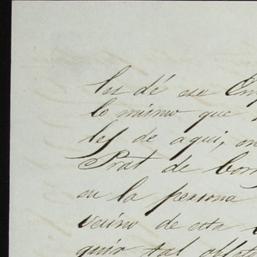 les dé ese
lo mismo que
les de aqui,
Prat de
en la persona
vecino de esta
quir tal